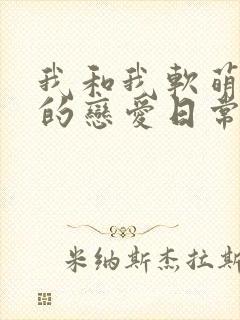 我和我軟萌
的戀愛日常
米纳斯杰拉斯